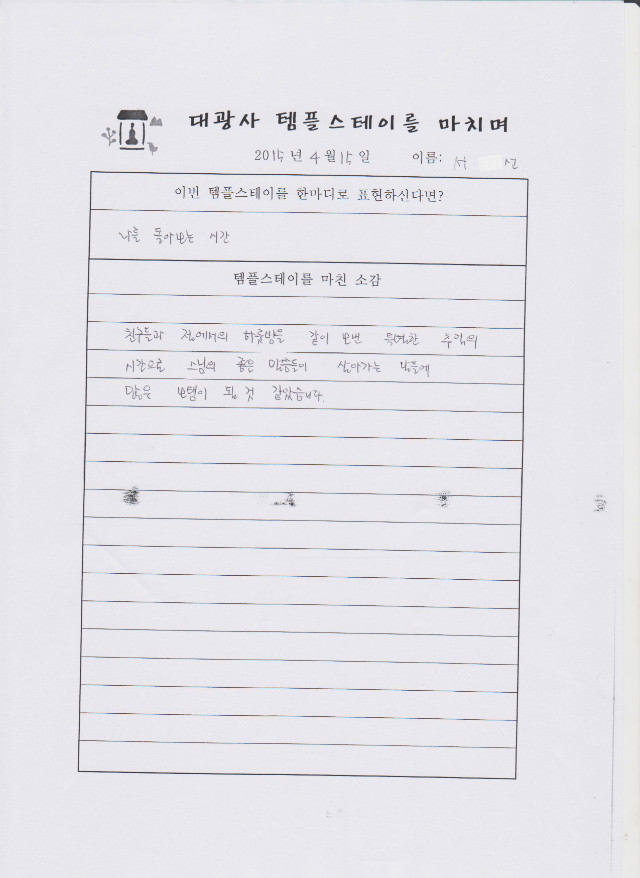 대광사 템플스테이를 마치며
2015년 4월 15일 이름: 서 선
이번 템플스테이를 한마디로 표현하신다면?
나를 돌아보는 시간
템플스테이를 마친 소감
친구들과 절에서의 하룻밤을 같이 보낸 특별한 추억의
시간으로 스님의 좋은 말씀들이 살아가는 날들에
많은 보탬이 될 것 같았습니다.